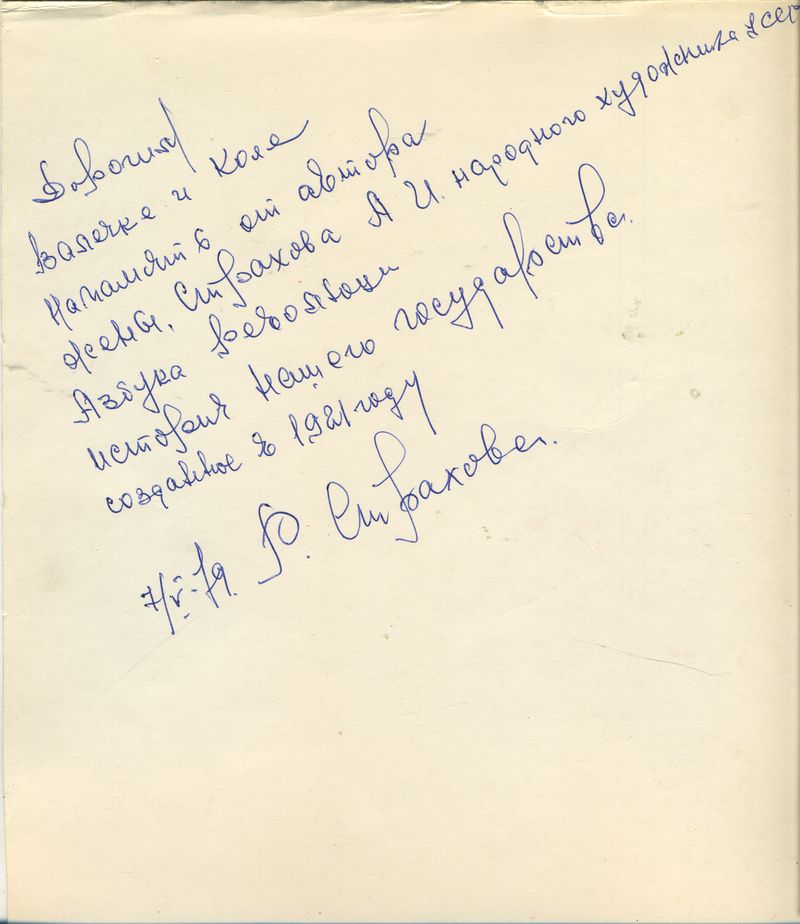 Дорогим
Валечке и Коле
На память от автора
жены, Страхова А И. народного художника УССР
Азбука революции
история нашего государства.
созданное в 1921 году
7/V-79. Ю. Страхова.